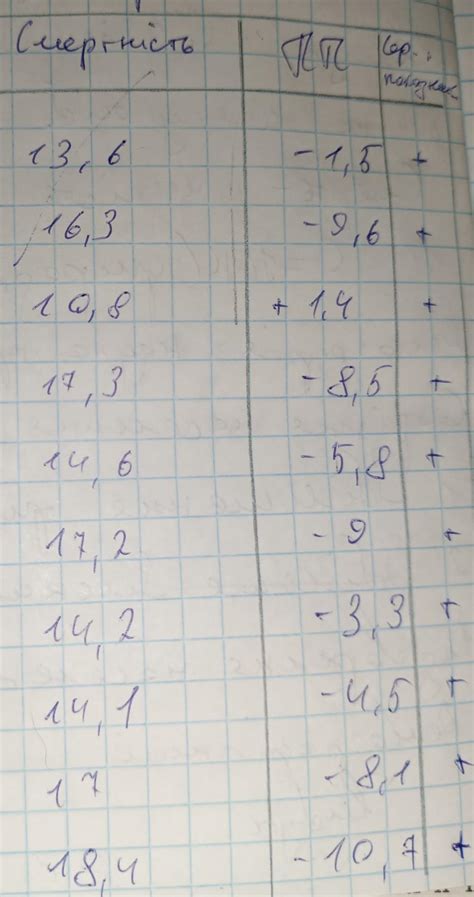 Смертність ПП Сер. показник
13,6 -1,5 +
16,3 -9,6 +
10,8 +1,4 +
17,3 -8,5 +
14,6 -5,8 +
17,2 -9 +
14,2 -3,3 +
14,1 -4,5 +
17 -8,1 +
18,4 -10,7 +